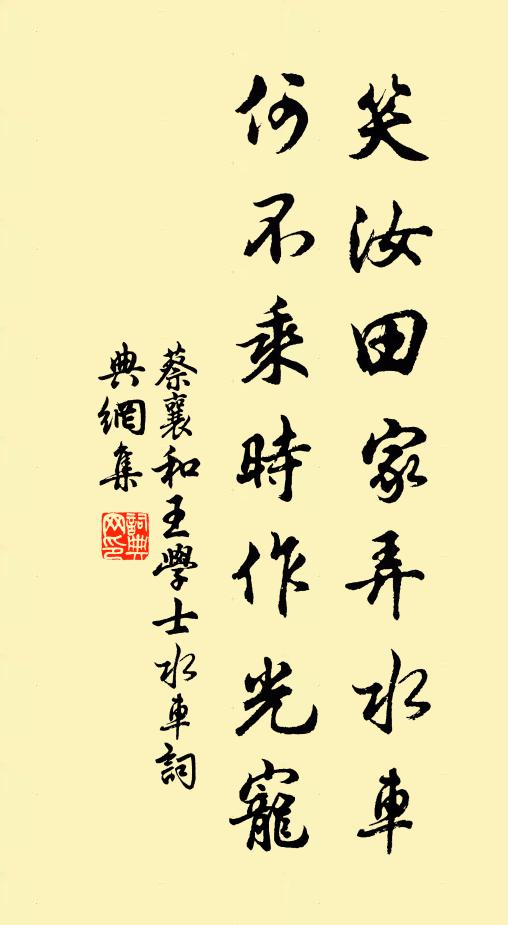 笑汝田家弄水車
何不乘時作光寵
蔡襄和王學士水車詞
典網集
詞典
网印